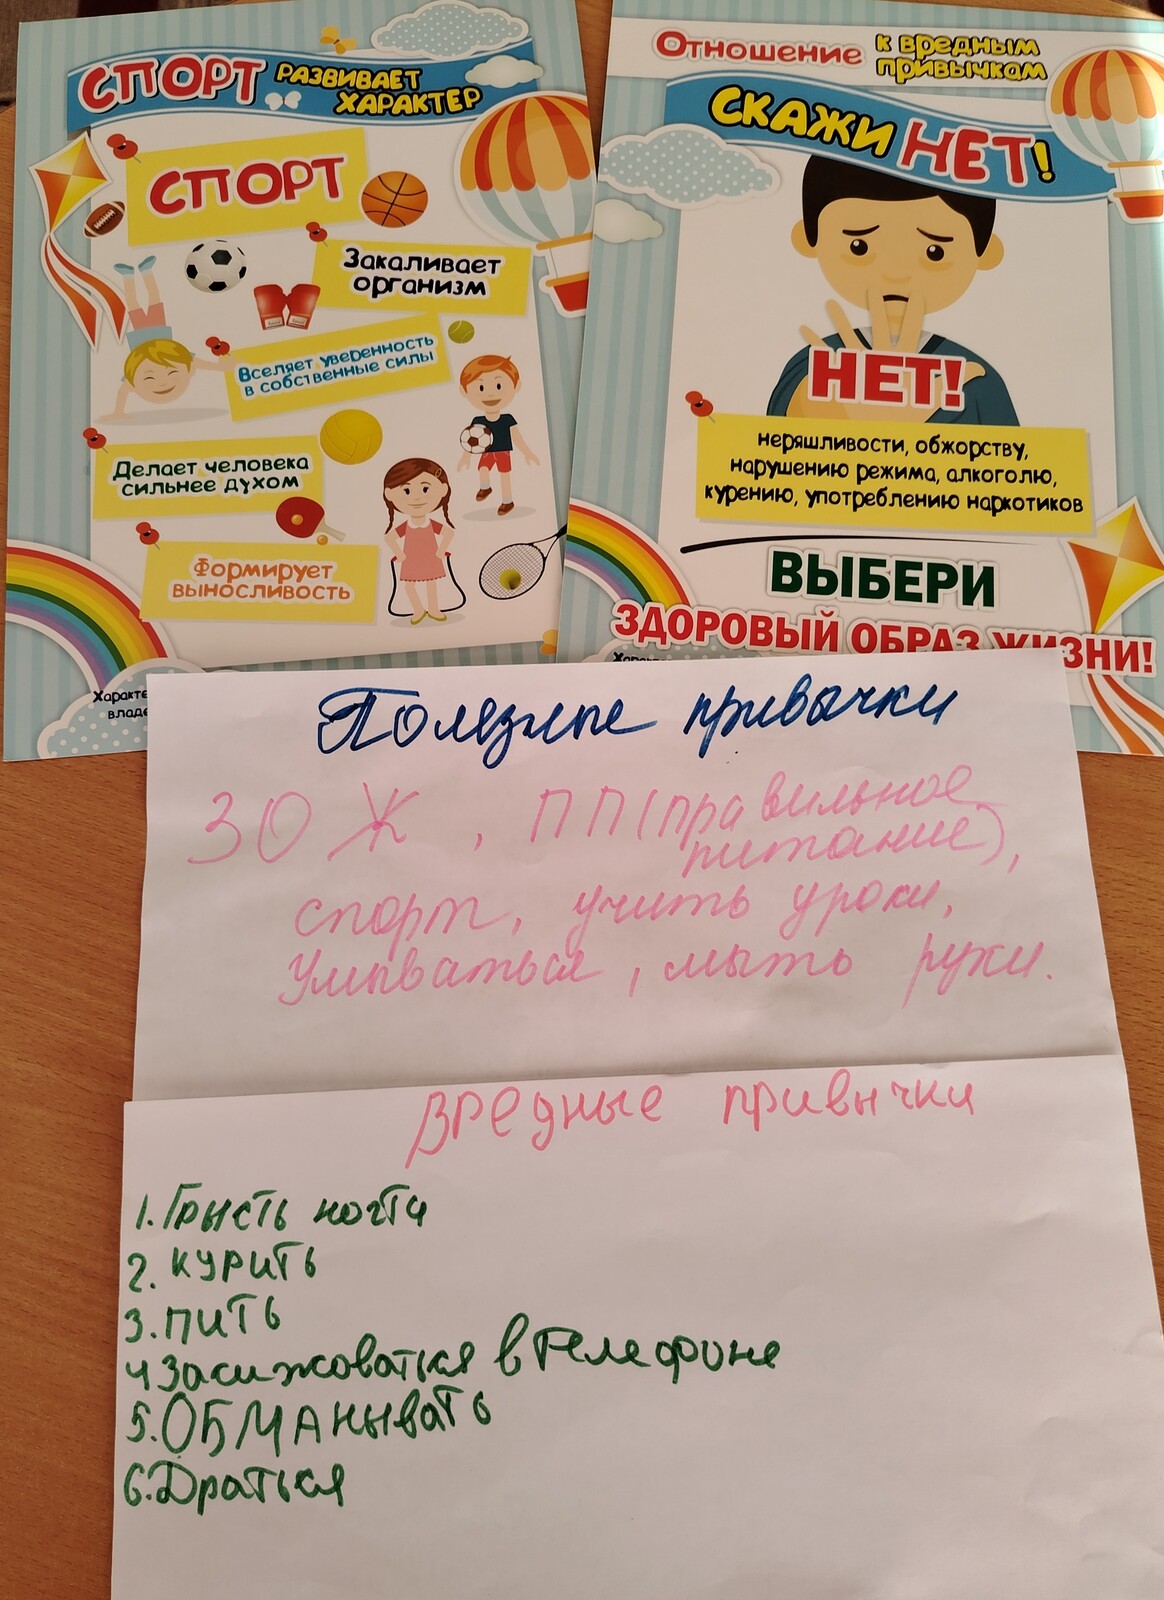 СПОРТ РАЗВИВАЕТ
ХАРАКТЕР
СПОРТ
Закаливает
организм
Вселяет уверенность
в собственные силы
Делает человека
сильнее духом
Формирует
выносливость
Характе
владе
Отношение к вредным
привычкам
СКАЖИ НЕТ!
НЕТ!
неряшливости, обжорству,
нарушению режима, алкоголю,
курению, употреблению наркотиков
ВЫБЕРИ
ЗДОРОВЫЙ ОБРАЗ ЖИЗНИ!
Полезные привычки
ЗОЖ, ПП (правильное
питание),
спорт, учить уроки,
Умываться, мыть руки.
Вредные привычки
1. Грысть ногти
2. курить
3. пить
4 Засижоваться в телефоне
5. ОБМАНЫВАТЬ
6. Драться